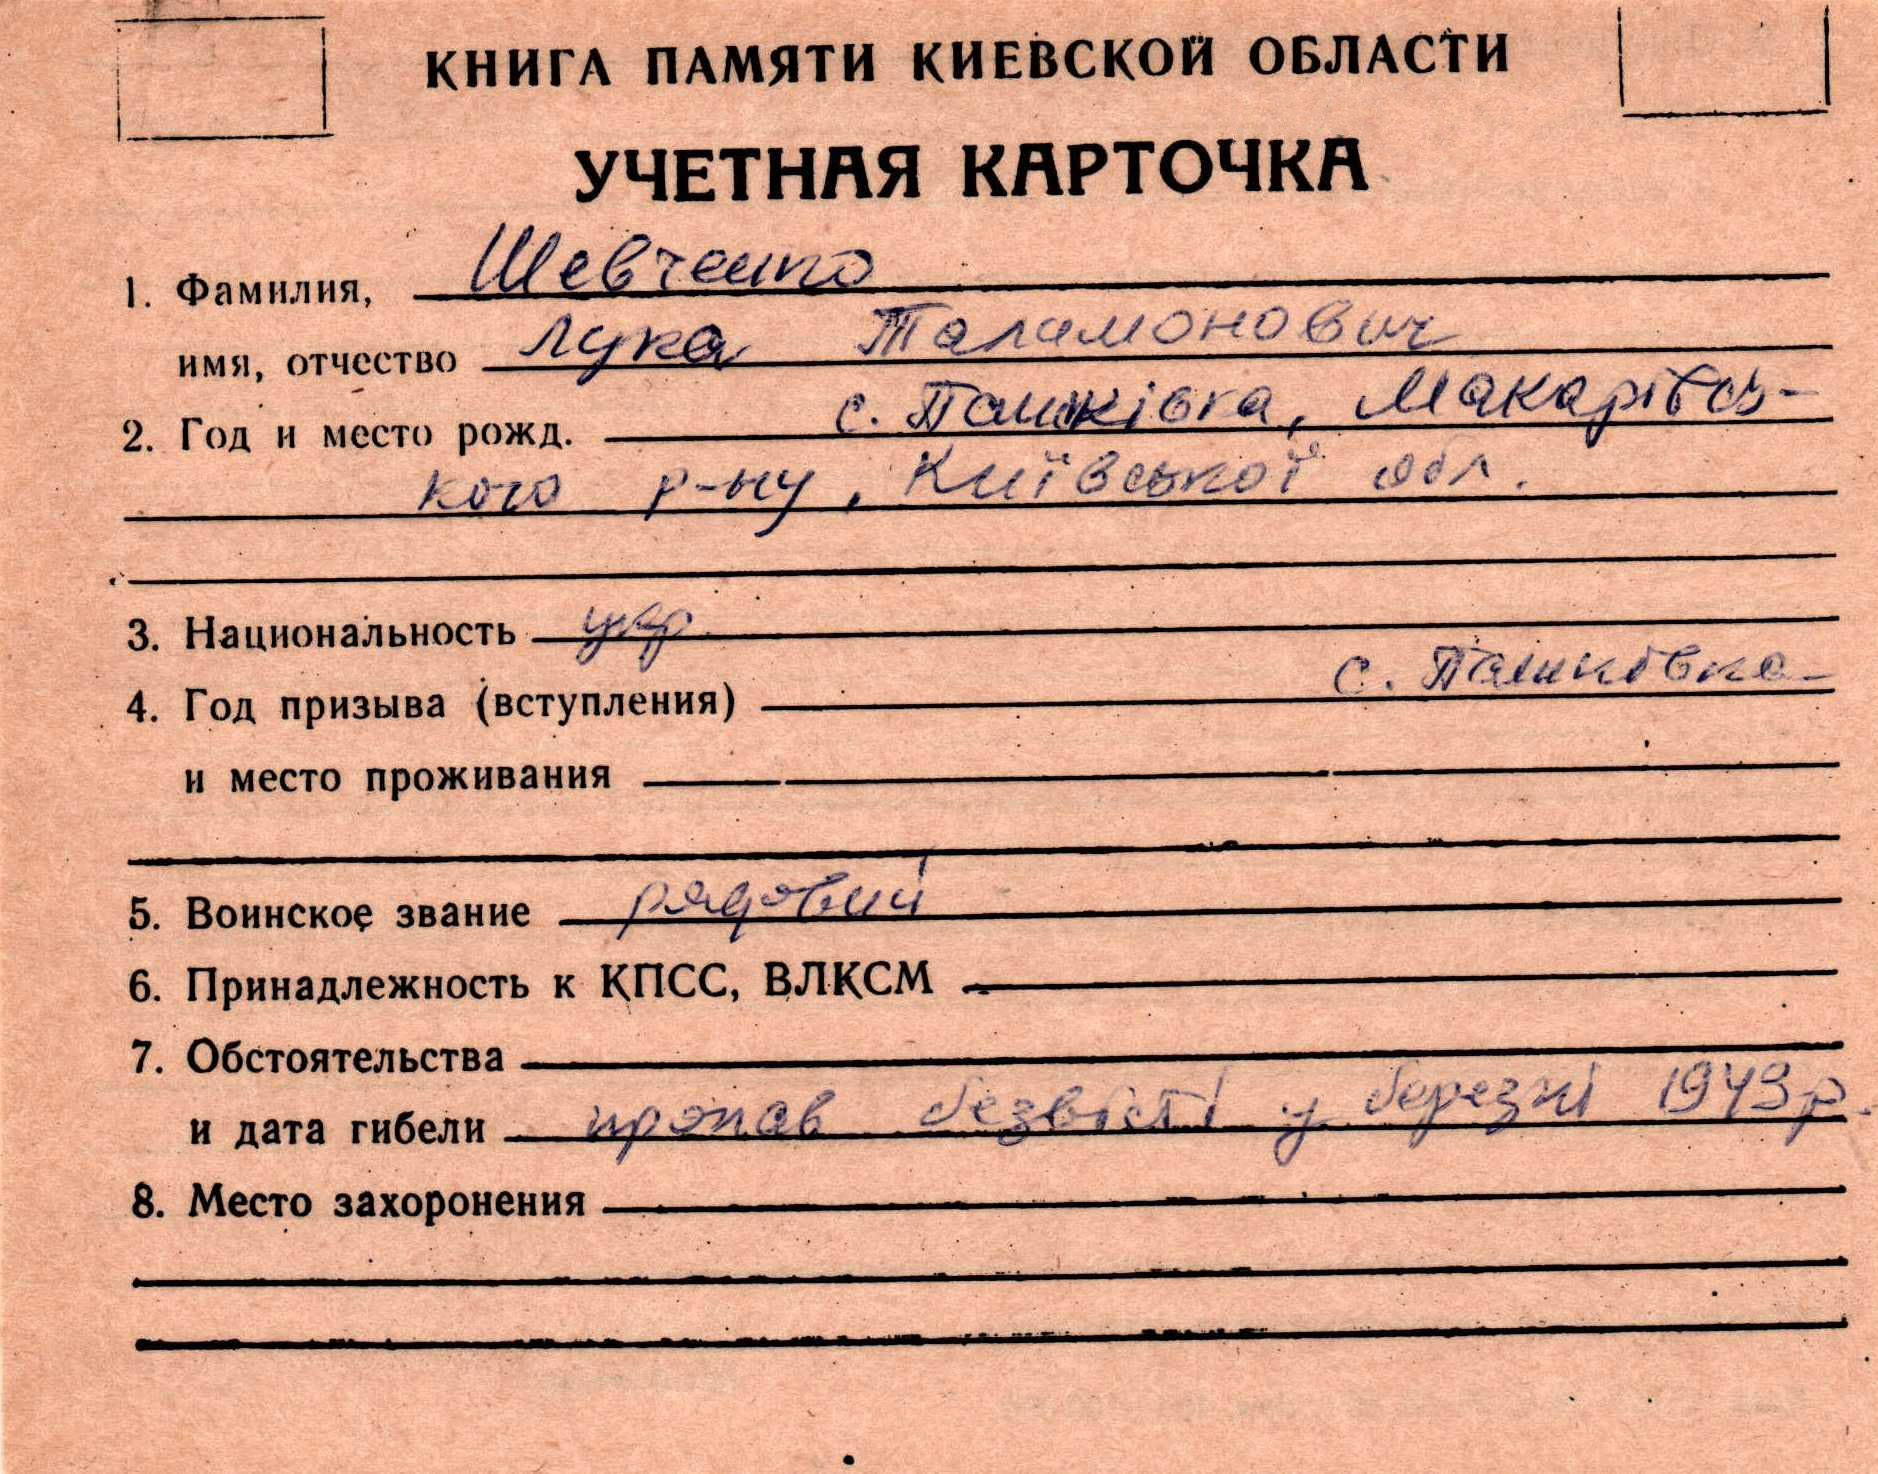 КНИГА ПАМЯТИ КИЕВСКОЙ ОБЛАСТИ
УЧЕТНАЯ КАРТОЧКА
1. Фамилия, Шевченко
имя, отчество Лука Таламонович
2. Год и место рожд. с. Пашківка, Макарівсь-
кого р-ну, Київської обл.
3. Национальность укр
4. Год призыва (вступления) с. Пашковка
и место проживания
5. Воинское звание рядовий
6. Принадлежность к КПСС, ВЛКСМ
7. Обстоятельства
и дата гибели пропав безвісті у березні 1943 р.
8. Место захоронения